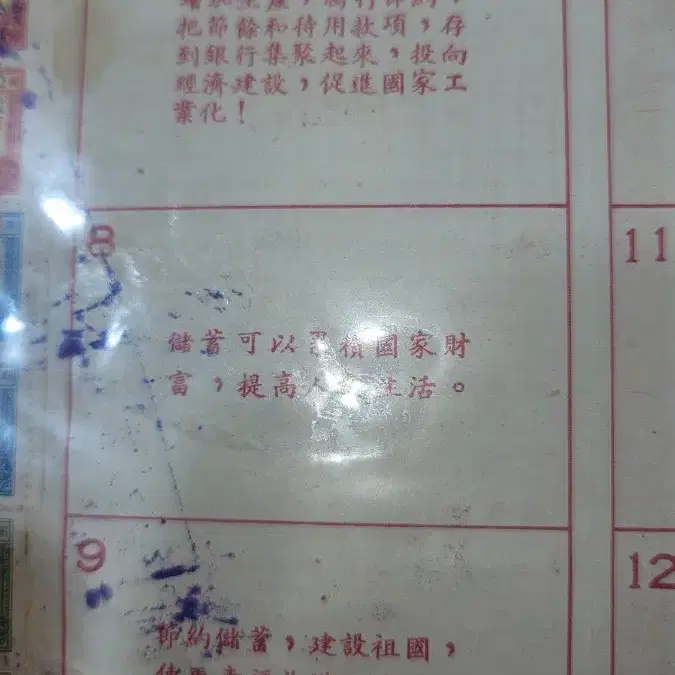 把節餘和待用款項，存
到銀行集聚起來，投向
經濟建設，促進國家工
業化！
8
11
儲蓄可以累積國家財
富，提高人民生活。
9
12
節約儲蓄，建設祖國，